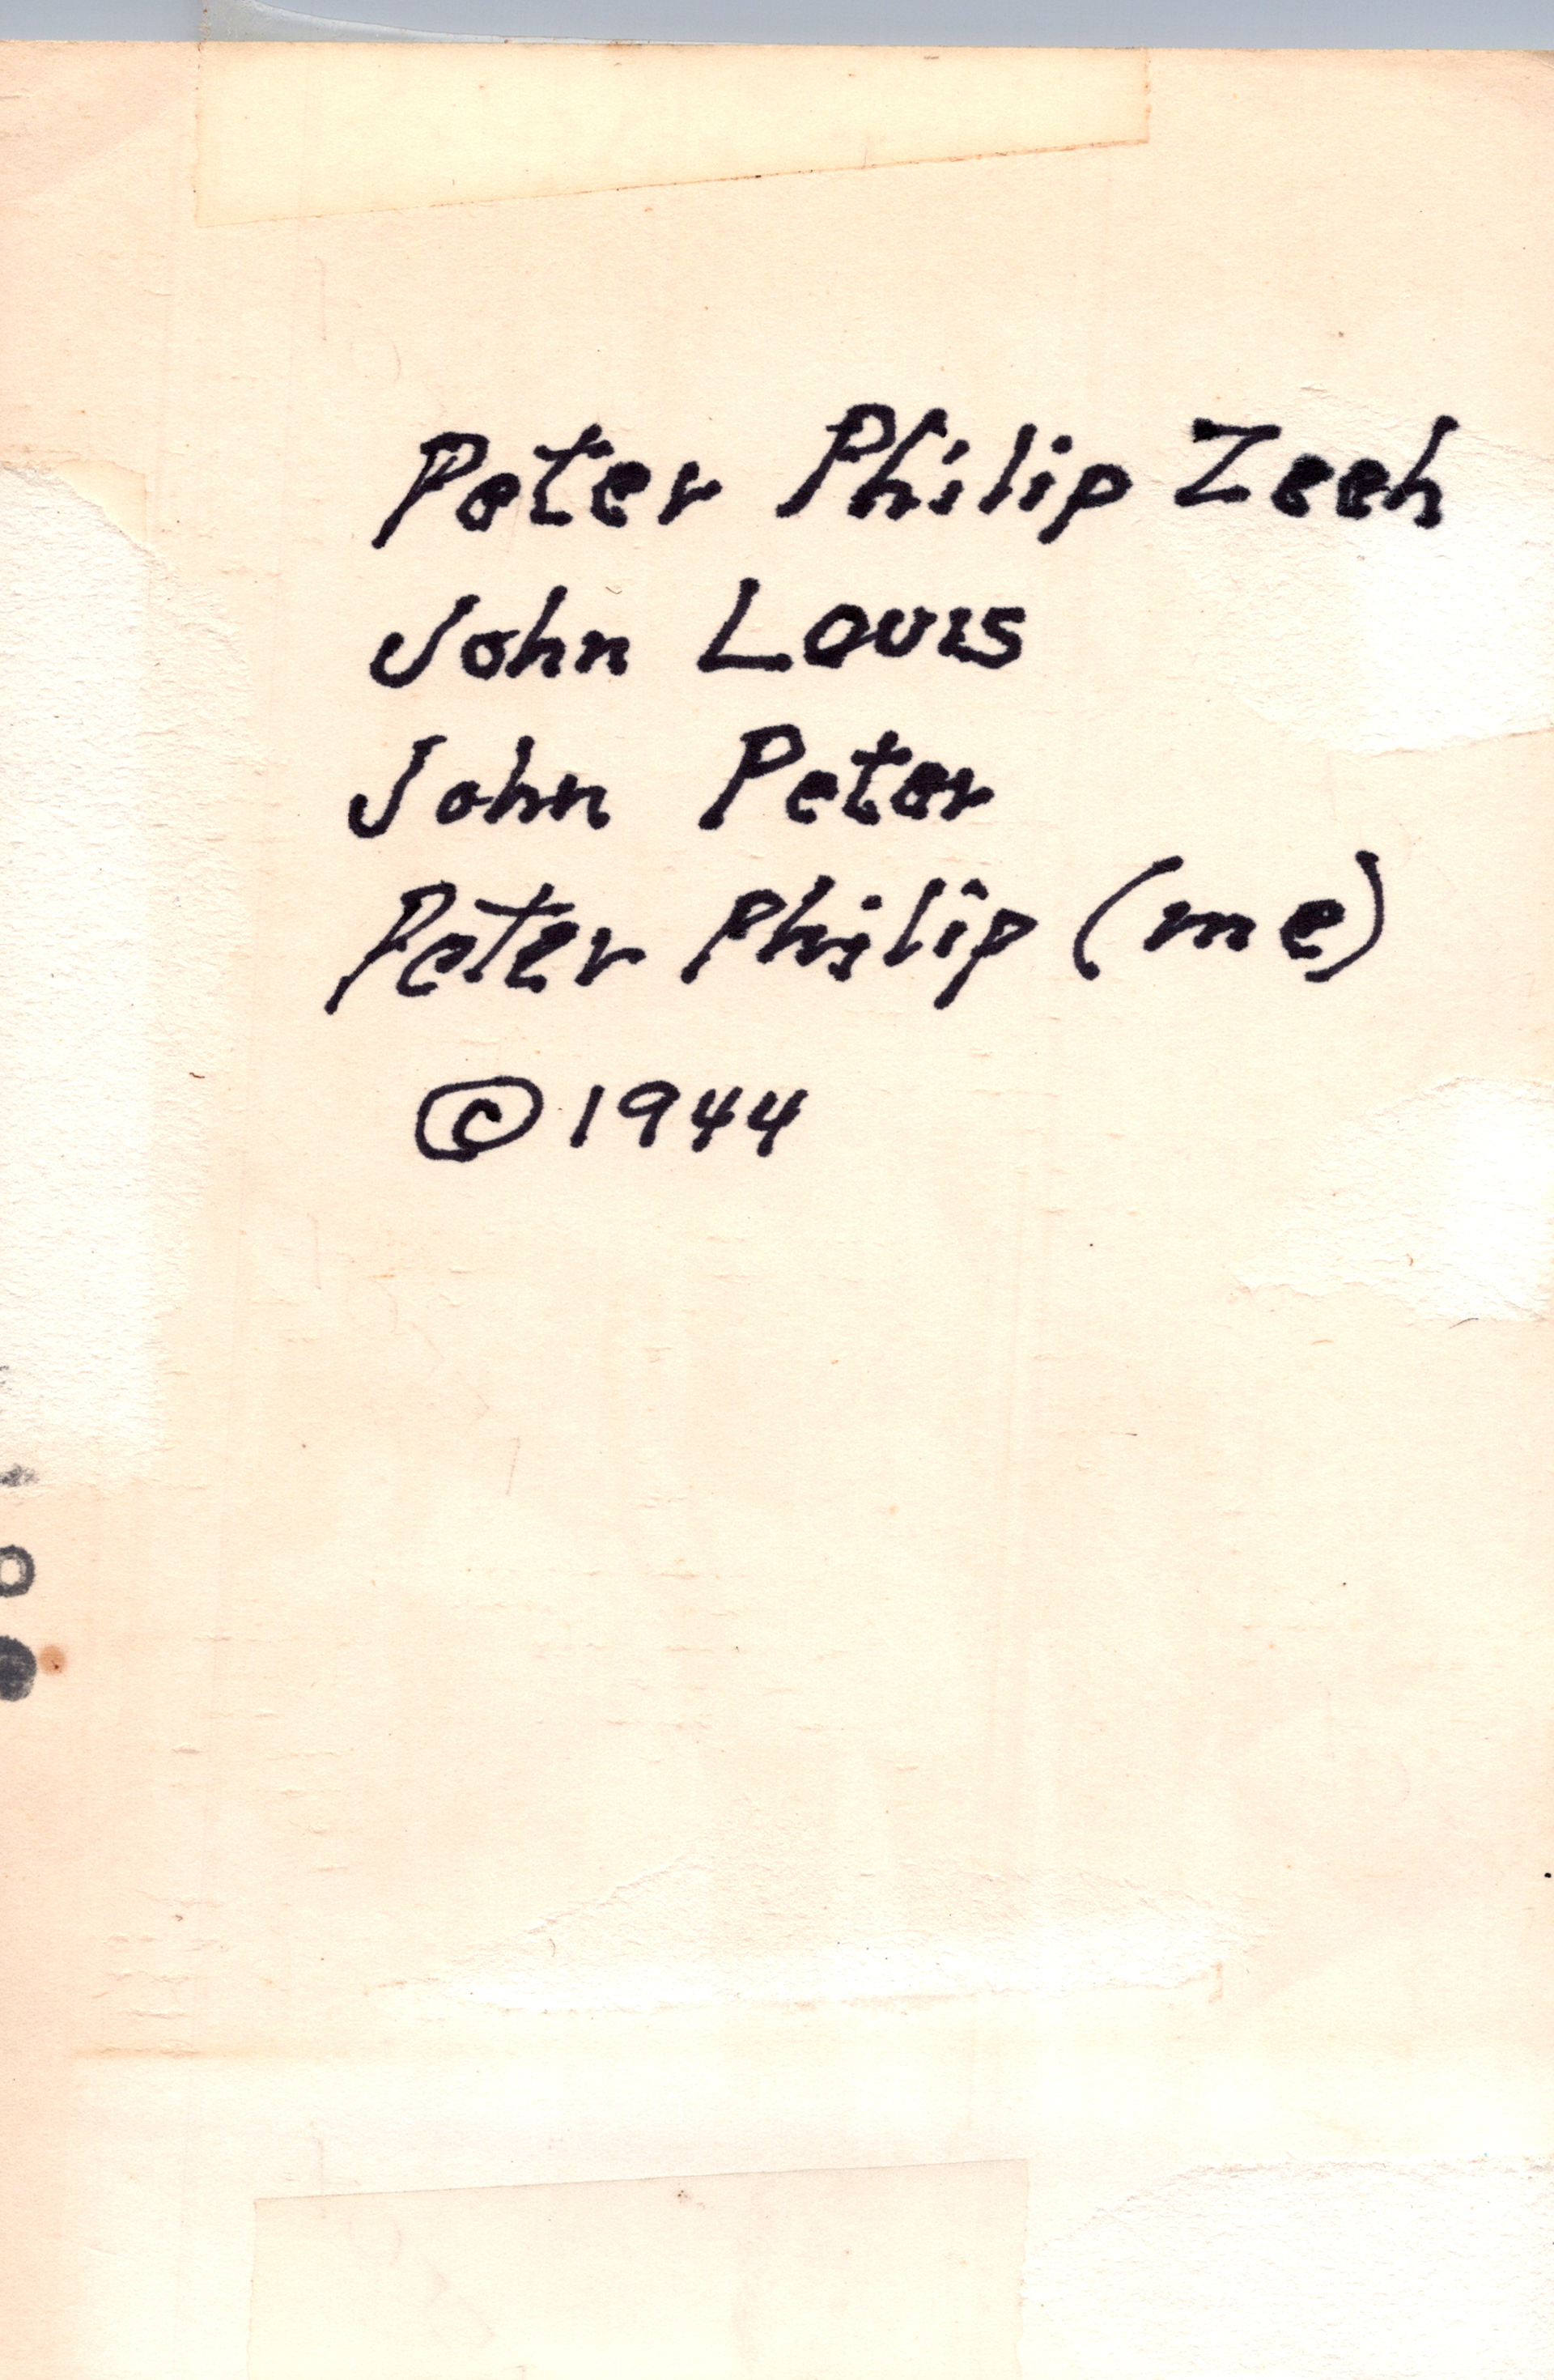 Peter Philip Zeeh
John Louis
John Peter
Peter Philip (me)
© 1944